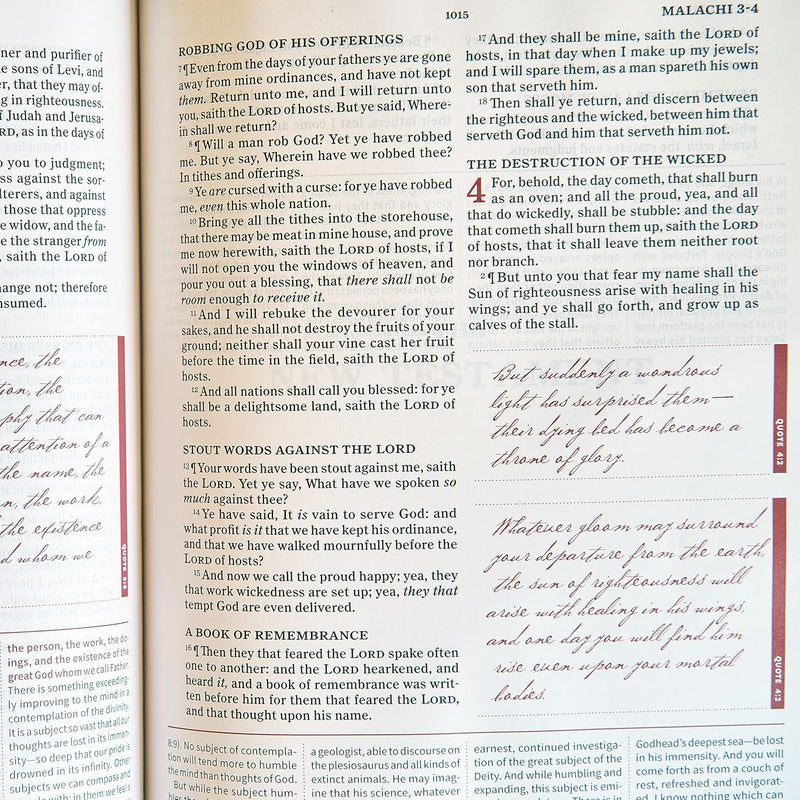 1015
MALACHI 3-4
ner and purifier of
e sons of Levi, and
er, that they may of-
g in righteousness.
f Judah and Jerusa-
RD, as in the days of
o you to judgment;
ss against the sor-
lterers, and against
those that oppress
e widow, and the fa-
e the stranger from
, saith the LORD of
ange not; therefore
nsumed.
nce, the
tion, the
phy that can
attention of a
the name, the
n, the work,
the existence
d whom we
the person, the work, the do-
ings, and the existence of the
great God whom we call Father.
There is something exceeding-
ly improving to the mind in a
contemplation of the divinity.
It is a subject so vast that all our
thoughts are lost in its immen-
sity—so deep that our pride is
drowned in its infinity. Other
subjects we can compass and
ROBBING GOD OF HIS OFFERINGS
7 ¶Even from the days of your fathers ye are gone
away from mine ordinances, and have not kept
them. Return unto me, and I will return unto
you, saith the LORD of hosts. But ye said, Where-
in shall we return?
8 ¶Will a man rob God? Yet ye have robbed
me. But ye say, Wherein have we robbed thee?
In tithes and offerings.
9 Ye are cursed with a curse: for ye have robbed
me, even this whole nation.
10 Bring ye all the tithes into the storehouse,
that there may be meat in mine house, and prove
me now herewith, saith the LORD of hosts, if I
will not open you the windows of heaven, and
pour you out a blessing, that there shall not be
room enough to receive it.
11 And I will rebuke the devourer for your
sakes, and he shall not destroy the fruits of your
ground; neither shall your vine cast her fruit
before the time in the field, saith the LORD of
hosts.
12 And all nations shall call you blessed: for ye
shall be a delightsome land, saith the LORD of
hosts.
STOUT WORDS AGAINST THE LORD
13 ¶Your words have been stout against me, saith
the LORD. Yet ye say, What have we spoken so
much against thee?
14 Ye have said, It is vain to serve God: and
what profit is it that we have kept his ordinance,
and that we have walked mournfully before the
LORD of hosts?
15 And now we call the proud happy; yea, they
that work wickedness are set up; yea, they that
tempt God are even delivered.
A BOOK OF REMEMBRANCE
16 ¶Then they that feared the LORD spake often
one to another: and the LORD hearkened, and
heard it, and a book of remembrance was writ-
ten before him for them that feared the LORD,
and that thought upon his name.
17 And they shall be mine, saith the LORD of
hosts, in that day when I make up my jewels;
and I will spare them, as a man spareth his own
son that serveth him.
18 Then shall ye return, and discern between
the righteous and the wicked, between him that
serveth God and him that serveth him not.
THE DESTRUCTION OF THE WICKED
4 For, behold, the day cometh, that shall burn
as an oven; and all the proud, yea, and all
that do wickedly, shall be stubble: and the day
that cometh shall burn them up, saith the LORD
of hosts, that it shall leave them neither root
nor branch.
2 ¶But unto you that fear my name shall the
Sun of righteousness arise with healing in his
wings; and ye shall go forth, and grow up as
calves of the stall.
But suddenly a wondrous
light has surprised them—
their dying bed has become a
throne of glory.
QUOTE 4:2
Whatever gloom may surround
your departure from the earth,
the sun of righteousness will
arise with healing in his wings,
and one day you will find him
rise even upon your mortal
bodies.
QUOTE 4:2
8:9). No subject of contempla-
tion will tend more to humble
the mind than thoughts of God.
But while the subject hum-
a geologist, able to discourse on
the plesiosaurus and all kinds of
extinct animals. He may imag-
ine that his science, whatever
earnest, continued investiga-
tion of the great subject of the
Deity. And while humbling and
expanding, this subject is emi-
Godhead's deepest sea—be lost
in his immensity. And you will
come forth as from a couch of
rest, refreshed and invigorat-
ed. I know nothing which can